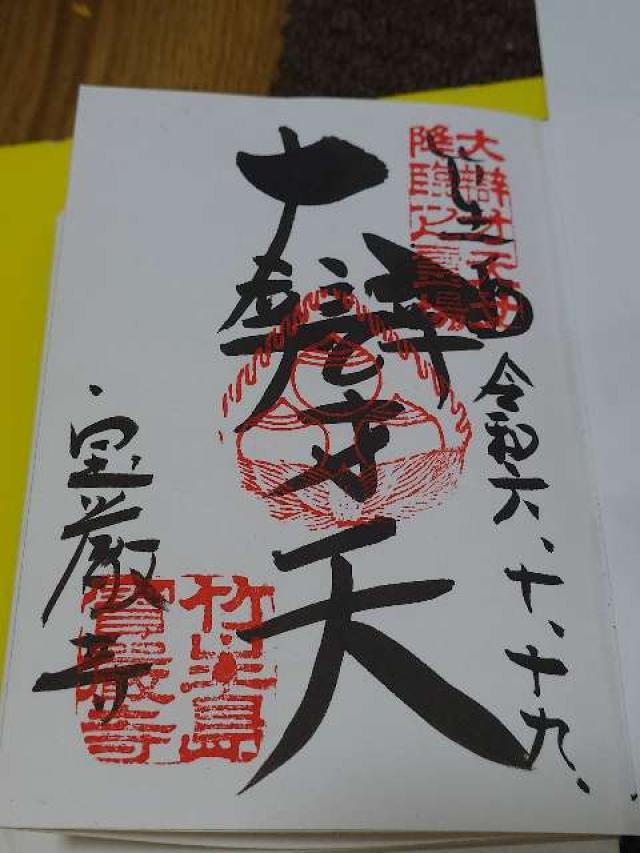 大辯才天女
降臨之靈場
令和六、十、十九、
大辯才天
宝厳寺
竹生島
寶嚴寺